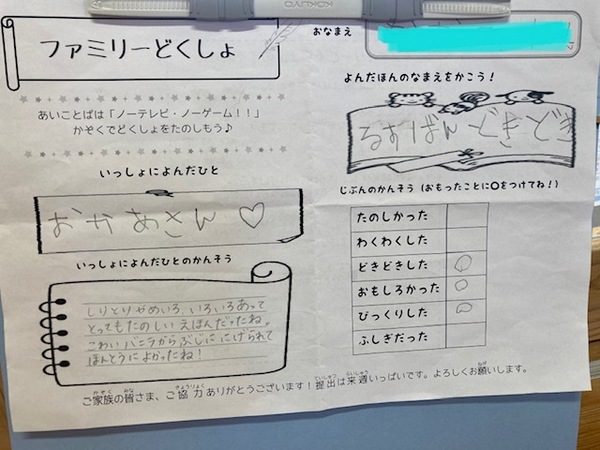 KOKUYO
ファミリーどくしょ
あいことばは「ノーテレビ・ノーゲーム！！」
かぞくでどくしょをたのしもう♪
いっしょによんだひと
おかあさん♡
いっしょによんだひとのかんそう
しりとりやめいろ、いろいろあって
とってもたのしいえほんだったね。
こわいバニラからぶじににげられて
ほんとうによかったね！
おなまえ
よんだほんのなまえをかこう！
るすばんどきどき
じぶんのかんそう（おもったことに〇をつけてね！）
たのしかった
わくわくした
どきどきした 〇
おもしろかった 〇
びっくりした 〇
ふしぎだった
ご家族の皆さま、ご協力ありがとうございます！提出は来週いっぱいです。よろしくお願いします。